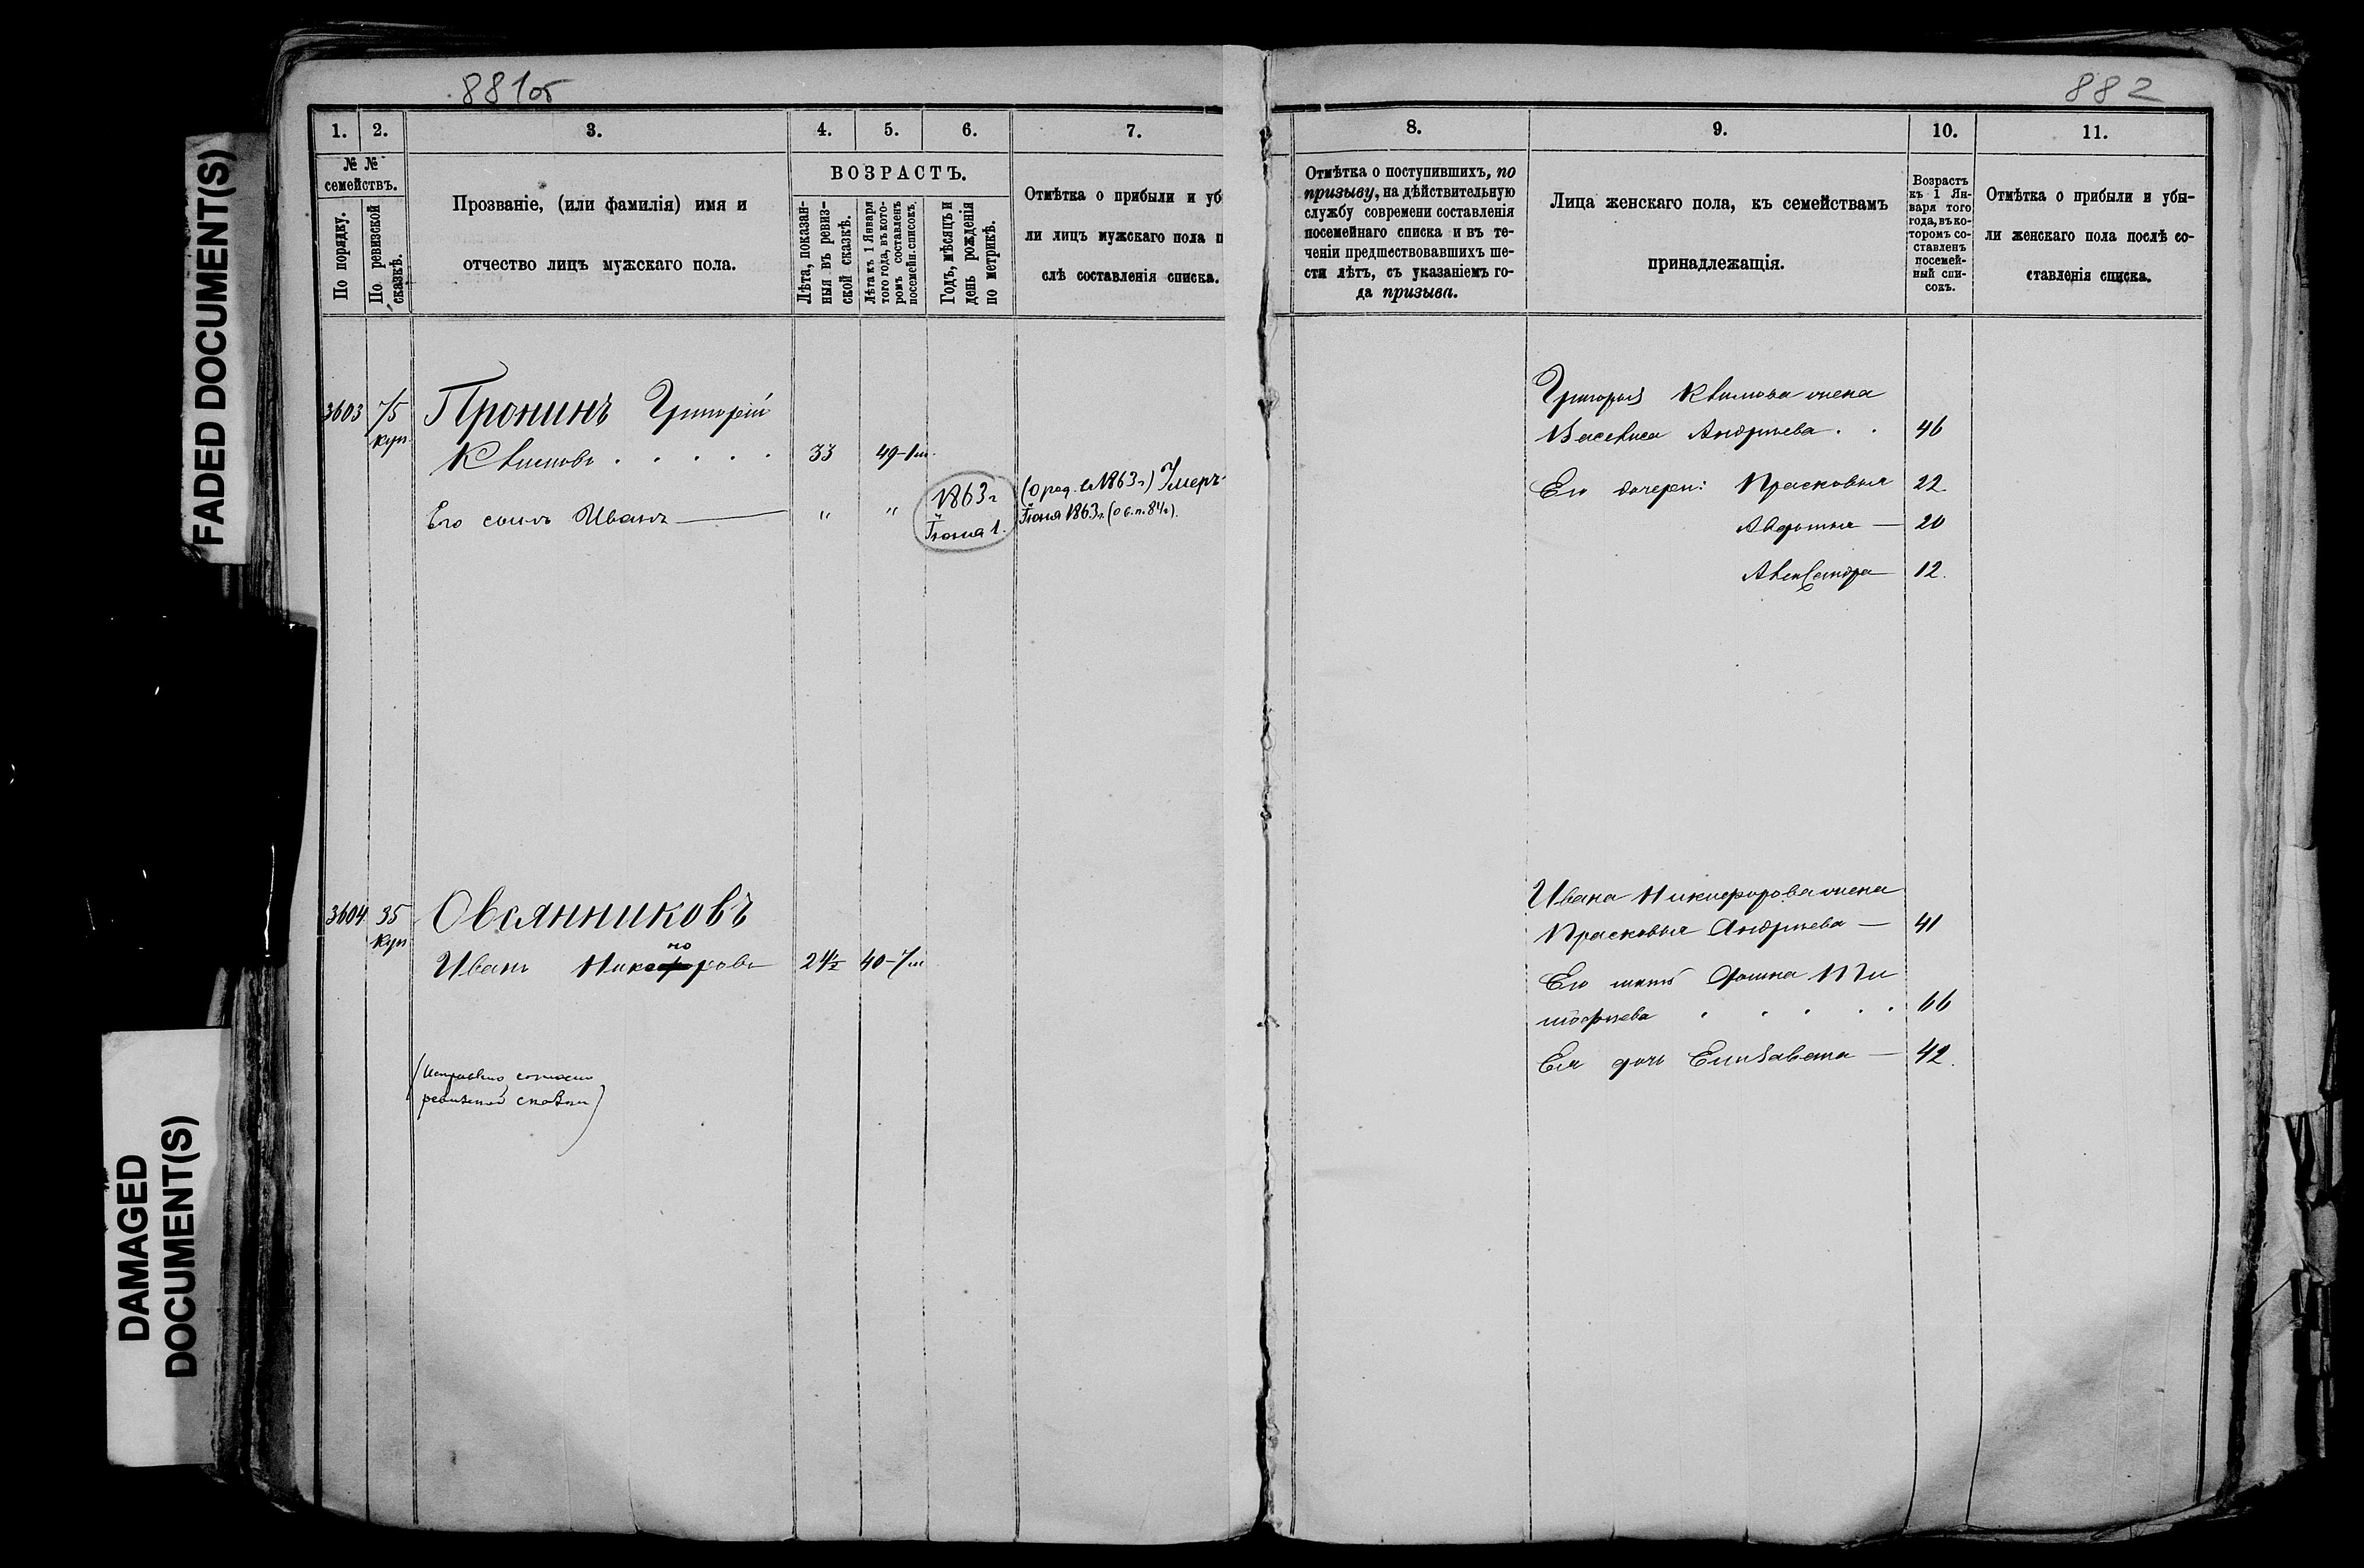 FADED DOCUMENT(S)
DAMAGED
DOCUMENT(S)
881об
1. 2. 3. 4. 5. 6. 7.
№ №
семействъ.
По порядку.
По ревизской
сказкѣ.
Прозваніе, (или фамилія) имя и
отчество лицъ мужскаго пола.
ВОЗРАСТЪ.
Лѣта, показан-
ныя въ ревиз-
ской сказкѣ.
Лѣта къ 1 Января
того года, въ кото-
ромъ составленъ
посемейн. списокъ.
Годъ, мѣсяцъ и
день рожденія
по метрикѣ.
Отмѣтка о прибыли и уб
ли лицъ мужскаго пола п
слѣ составленія списка.
3603 75 Пронинъ Григорій
куп.
33 49-1м.
Его сынъ Иванъ " " 1863г Іюня 1.
Умеръ
Іюня 1863г.
3604 35 Овсянниковъ
куп
но
Иванъ 24½ 40-7м
882
8. 9. 10. 11.
Отмѣтка о поступившихъ, по
призыву, на дѣйствительную
службу современи составленія
посемейнаго списка и въ те-
ченіи предшествовавшихъ ше-
сти лѣтъ, съ указаніемъ го-
да призыва.
Лица женскаго пола, къ семействамъ
принадлежащія.
Возрастъ
къ 1 Ян-
варя того
года, въ ко-
торомъ со-
ставленъ
посемей-
ный спи-
сокъ.
Отмѣтка о прибыли и убы-
ли женскаго пола послѣ со-
ставленія списка.
Григорья жена
Андреева . . 46
Его дочери: Прасковья 22
Авдотья — 20
Александра — 12.
Ивана Никифорова жена
Прасковья Андреева — 41
Его мать Ти
мофеева . . . . . 66
Ея дочь Елизавета — 42.